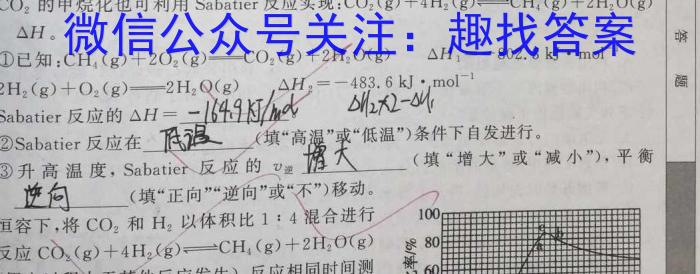 CO₂ 的甲烷化也可利用 Sabatier 反应实现:CO₂(g)+4H₂(g)⇌CH₄(g)+2H₂O(g)
ΔH。
微信公众号关注：趣找答案
①已知:CH₄(g)+2O₂(g)⇌CO₂(g)+2H₂O(g) ΔH₁ 802.6 kJ·mol⁻¹
2H₂(g)+O₂(g)═2H₂O(g) ΔH₂=-483.6 kJ·mol⁻¹
Sabatier 反应的 ΔH= -164.9KJ/mol ΔH₂×2-ΔH₁
②Sabatier 反应在 低温 (填“高温”或“低温”)条件下自发进行。
③升高温度, Sabatier 反应的 v逆 增大 (填“增大”或“减小”), 平衡
逆向 (填“正向”“逆向”或“不”)移动。
恒容下,将 CO₂ 和 H₂ 以体积比 1:4 混合进行
反应 CO₂(g)+4H₂(g)⇌CH₄(g)+2H₂O(g)
反应相同时间测
100
80
60
率/%
a
b
答
题